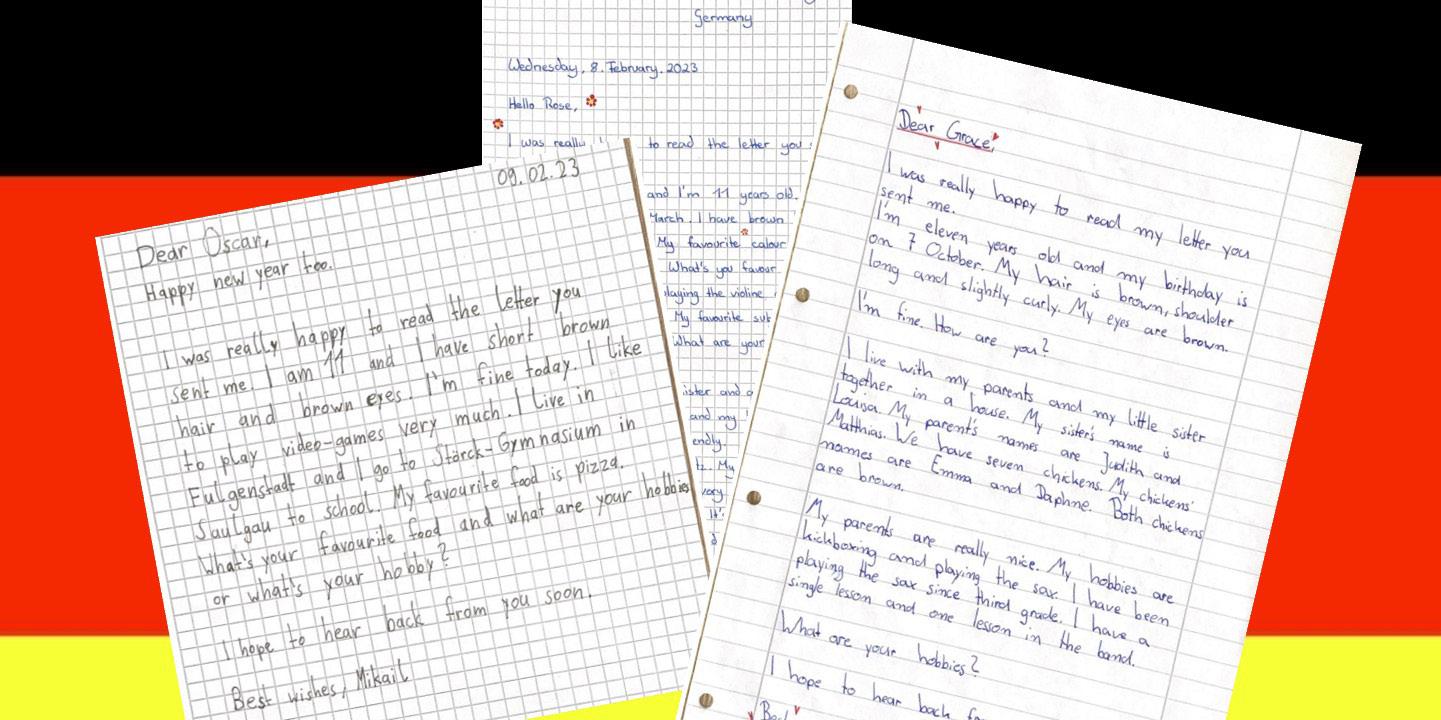 Germany
Wednesday, 8. February. 2023
Hello Rose,
I was really to read the letter you
and I'm 11 years old.
March. I have brown
My favourite colour
What's you favour
laying the violine
My favourite sub
What are your
ister and
and my
endly.
My
very
It's
09.02.23
Dear Oscar,
Happy new year too.
I was really happy to read the letter you
sent me. I am 11 and I have short brown
hair and brown eyes. I'm fine today. I like
to play video-games very much. I live in
Fulgenstadt and I go to Störck-Gymnasium in
Saulgau to school. My favourite food is pizza.
What's your favourite food and what are your hobbies
or what's your hobby?
I hope to hear back from you soon.
Best wishes, Mikail
Dear Grace,
I was really happy to read my letter you
sent me.
I'm eleven years old and my birthday is
on 7 October. My hair is brown, shoulder
long and slightly curly. My eyes are brown.
I'm fine. How are you?
I live with my parents and my little sister
together in a house. My sister's name is
Louisa. My parent's names are Judith and
Matthias. We have seven chickens. My chickens'
names are Emma and Daphne. Both chickens
are brown.
My parents are really nice. My hobbies are
kickboxing and playing the sax. I have been
playing the sax since third grade. I have a
single lesson and one lesson in the band.
What are your hobbies?
I hope to hear back